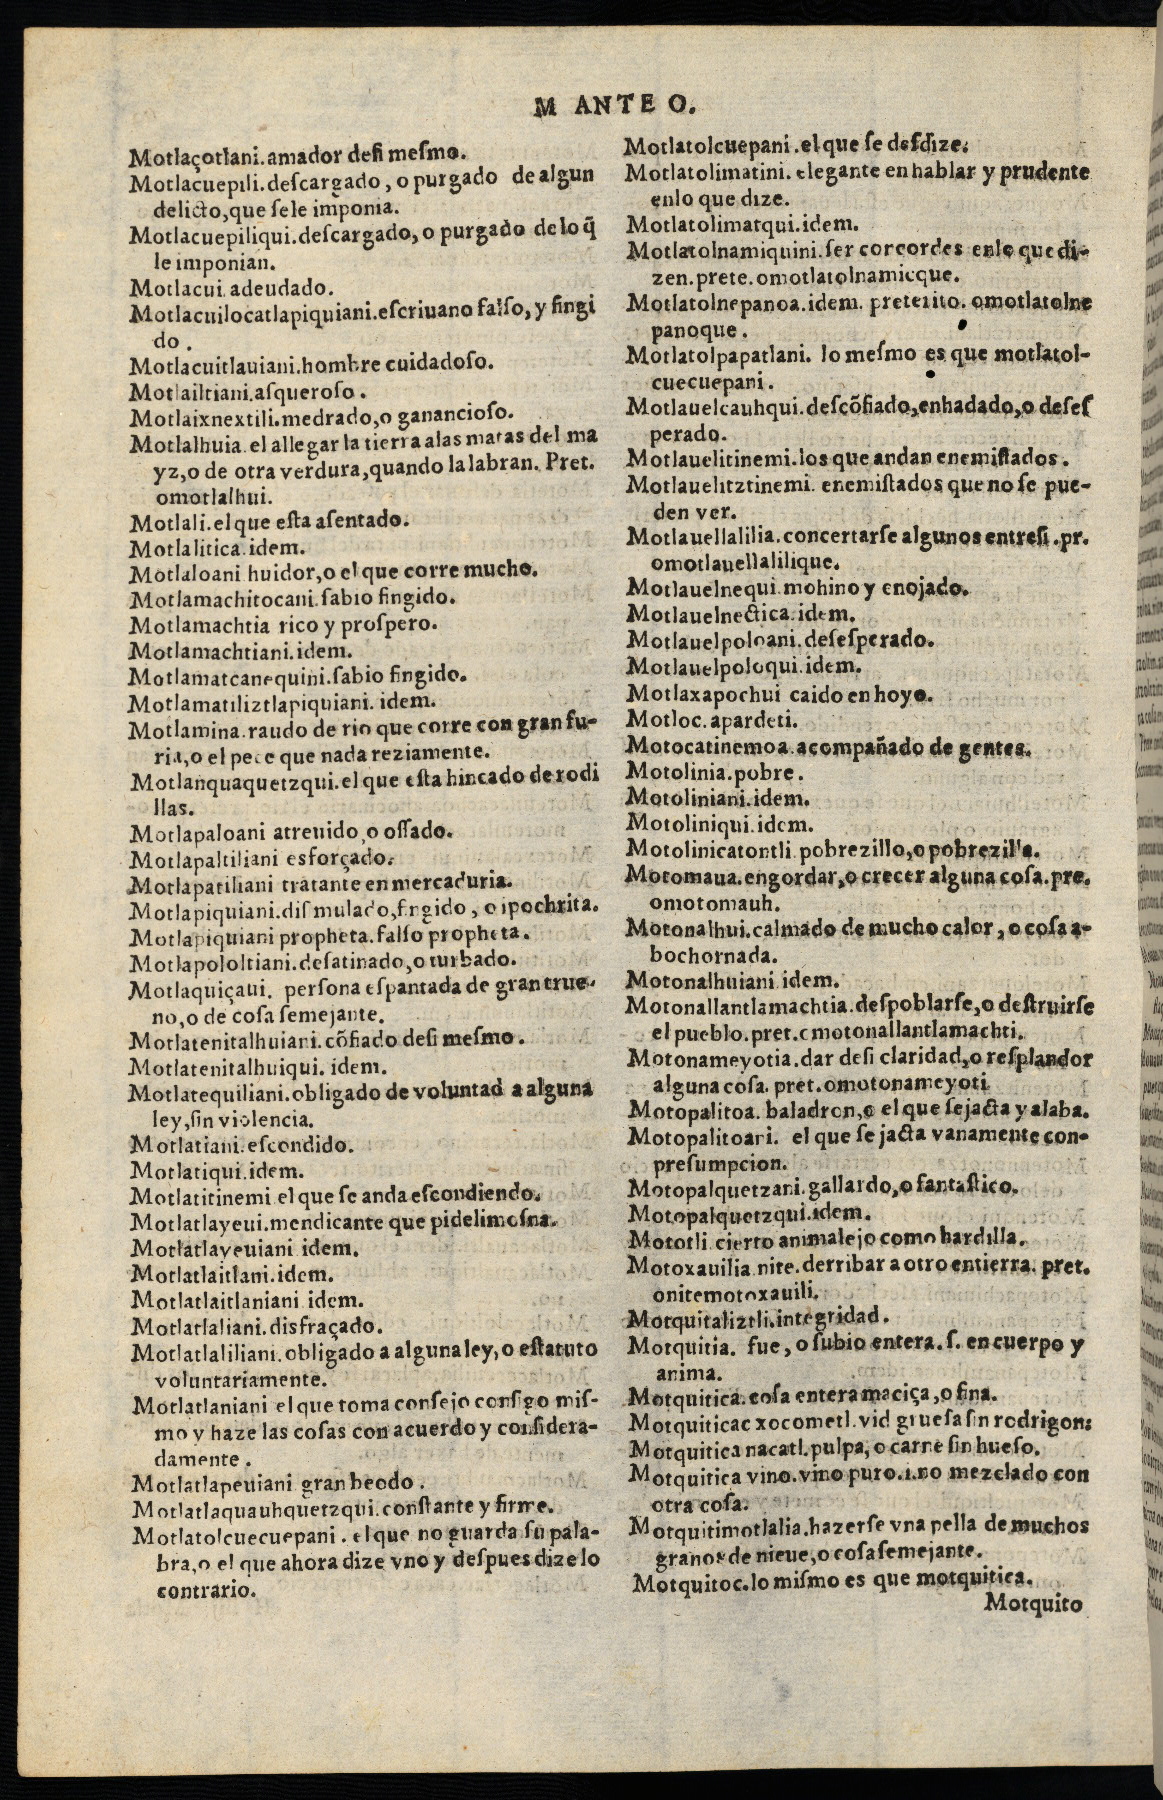 M ANTE O.
Motlaçotlani.amador desi mesmo.
Motlacuepili.descargado, o purgado de algun
delicto,que sele imponia.
Motlacuepiliqui.descargado, o purgado delo q̃
le imponian.
Motlacui.adeudado.
Motlacuilocatlapiquiani.escriuano falso, y fingi
do.
Motlacuitlauiani.hombre cuidadoso.
Motlailtiani.asqueroso.
Motlaixnextili.medrado,o ganancioso.
Motlalhuia.el allegar la tierra alas matas del ma
yz,o de otra verdura,quando la labran. Pret.
omotlalhui.
Motlali.el que esta asentado.
Motlalitica.idem.
Motlaloani huidor,o el que corre mucho.
Motlamachitocani.sabio fingido.
Motlamachtia rico y prospero.
Motlamachtiani.idem.
Motlamatcanequini.sabio fingido.
Motlamatiliztlapiquiani. idem.
Motlamina.raudo de rio que corre con gran fu-
ria,o el pece que nada reziamente.
Motlanquaquetzqui.el que esta hincado de rodi
llas.
Motlapaloani atreuido,o ossado.
Motlapaltiliani esforçado.
Motlapatiliani tratante en mercaduria.
Motlapiquiani.dis mulado,fingido, o ipochrita.
Motlapiquiani propheta.falso propheta.
Motlapololtiani.desatinado,o turbado.
Motlaquiçaui. persona espantada de gran true-
no,o de cosa semejante.
Motlatenitalhuiani.cõfiado desi mesmo.
Motlatenitalhuiqui. idem.
Motlatequiliani.obligado de voluntad a alguna
ley,sin violencia.
Motlatiani.escondido.
Motlatiqui.idem.
Motlatitinemi el que se anda escondiendo.
Motlatlayeui.mendicante que pidelimosna.
Motlatlayeuiani idem.
Motlatlaitlani.idem.
Motlatlaitlaniani idem.
Motlatlaliani.disfraçado.
Motlatlaliliani.obligado a alguna ley, o estatuto
voluntariamente.
Motlatlaniani el que toma consejo consigo mis-
mo y haze las cosas con acuerdo y considera-
damente.
Motlatlapeuiani gran beodo.
Motlatlaquauhquetzqui.constante y firme.
Motlatolcuecuepani. el que no guarda su pala-
bra,o el que ahora dize vno y despues dize lo
contrario.
Motlatolcuepani.el que se desdize.
Motlatolimatini. elegante en hablar y prudente
enlo que dize.
Motlatolimatqui.idem.
Motlatolnamiquini.ser corcordes enlo que di-
zen.prete.omotlatolnamicque.
Motlatolnepanoa.idem. preterito. omotlatolne
panoque.
Motlatolpapatlani. lo mesmo es que motlatol-
cuecuepani.
Motlauelcauhqui.descõfiado,enhadado,o deses
perado.
Motlauelitinemi.los que andan enemistados.
Motlauelitztinemi. enemistados que no se pue-
den ver.
Motlauellalilia.concertarse algunos entresi.pr.
omotlauellalilique.
Motlauelnequi.mohino y enojado.
Motlauelnectica.idem.
Motlauelpoloani.desesperado.
Motlauelpoloqui.idem.
Motlaxapochui caido en hoyo.
Motloc.apardeti.
Motocatinemoa.acompañado de gentes.
Motolinia.pobre.
Motoliniani.idem.
Motoliniqui.idem.
Motolinicatontli.pobrezillo,o pobrezilla.
Motomaua.engordar,o crecer alguna cosa.pre.
omotomauh.
Motonalhui.calmado de mucho calor, o cosa a-
bochornada.
Motonalhuiani idem.
Motonallantlamachtia.despoblarse,o destruirse
el pueblo.pret.omotonallantlamachti.
Motonameyotia.dar desi claridad,o resplandor
alguna cosa. pret.omotonameyoti
Motopalitoa. baladron,o el que sejacta y alaba.
Motopalitoari. el que se jacta vanamente con-
presumpcion.
Motopalquetzani.gallardo,o fantastico.
Motopalquetzqui.idem.
Mototli cierto animalejo como hardilla.
Motoxauilia.nite.derribar a otro entierra. pret.
onitemotoxauili.
Motquitaliztli.integridad.
Motquitia. fue, o subio entera. s. en cuerpo y
anima.
Motquitica.cosa entera maciça, o fina.
Motquiticac xocometl.vid gruesa sin rodrigon:
Motquitica nacatl.pulpa,o carne sin hueso.
Motquitica vino.vino puro.i.no mezclado con
otra cosa.
Motquitimotlalia.hazerse vna pella de muchos
granos de nieue,o cosa semejante.
Motquitoc.lo mismo es que motquitica.
Motquito